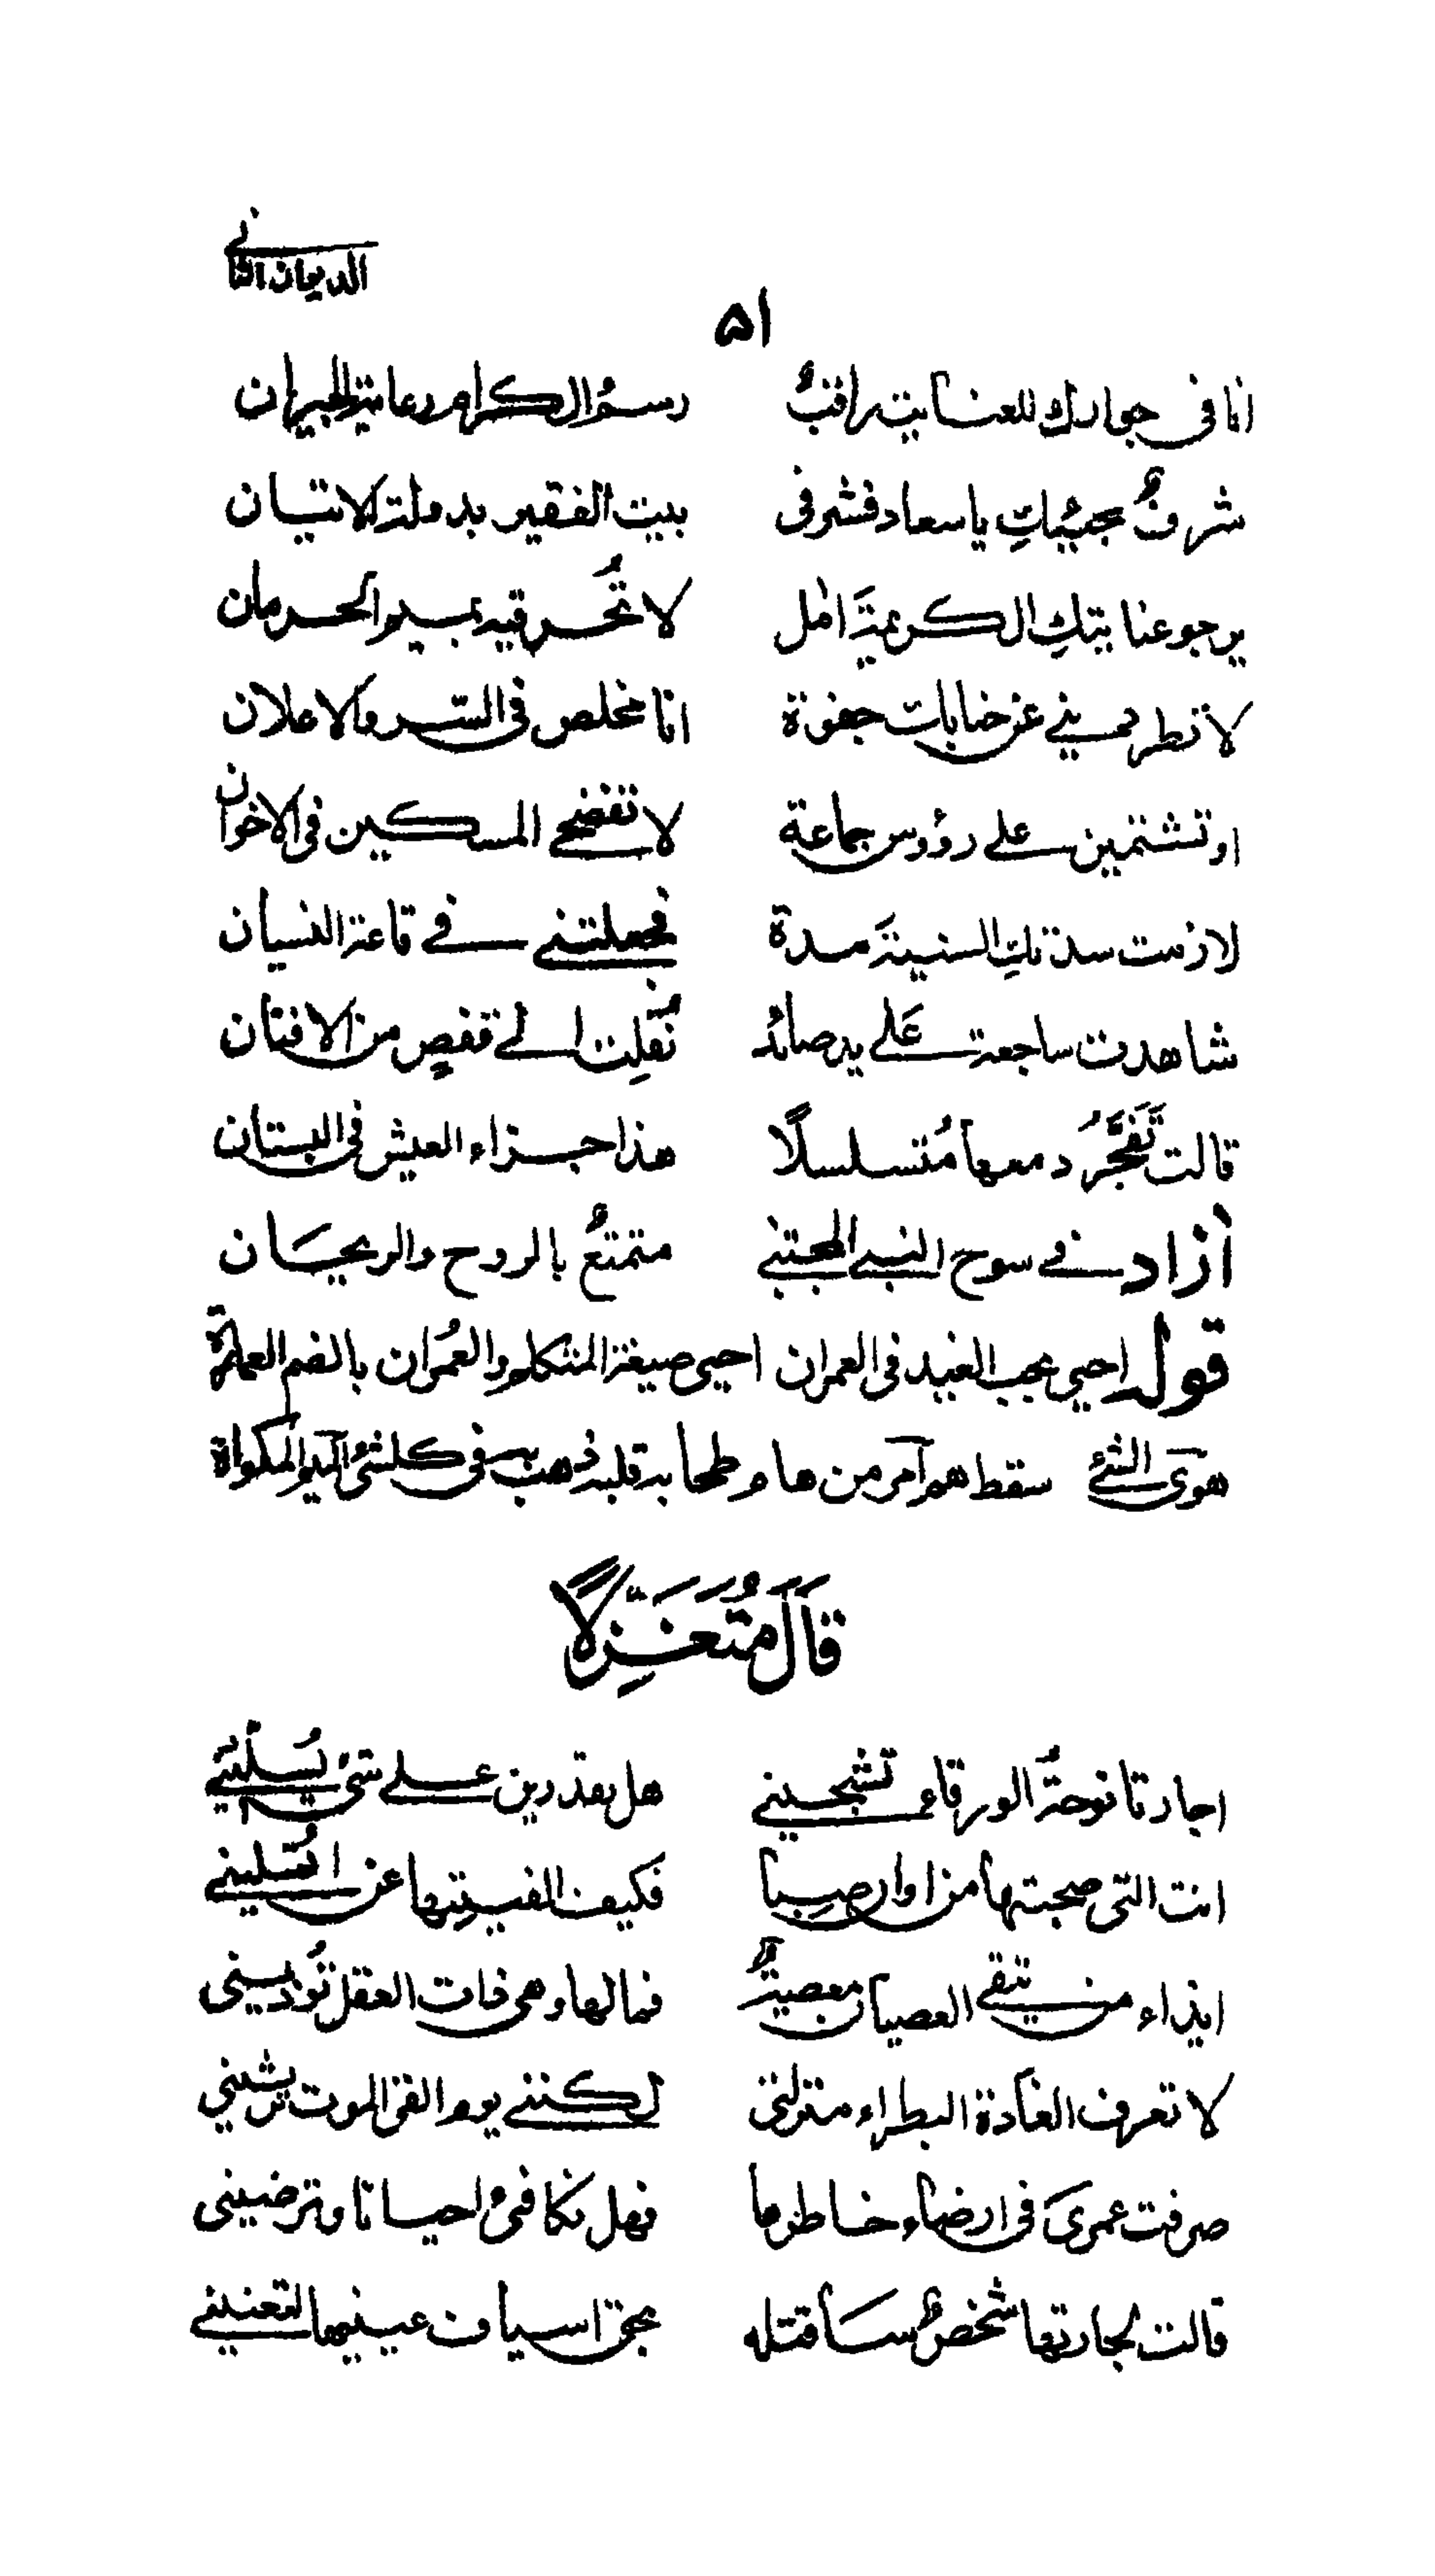 الديوان الثاني
٥١
انا في جوارك للعناية راقبٌ رسمُ الكرام رعاية الجيران
شرفٌ مجيئكِ يا سعاد فشرفي بيت الفقير بدولة الاتيان
يرجو عنايتكِ الكريمةَ امل لا تُحرقيه بميسم الحرمان
لا تطرديني عن جنابك جفوة انا مخلص في السّر والاعلان
او تشتمين على رؤوس جماعة لا تفضحي المسكين في الاخوان
لازمت سدتكِ السنيةَ مدة فجعلتني في قاعة النسيان
شاهدت ساجعة عَلى يد صائد نُقلِت الى قفصٍ من الافنان
قالت تَفَجَّرُ دمعها مُتسلسلًا هذا جزاء العيش في البستان
ازاد في سوح النبي المجتبى متمتعٌ بالروح والريحَان
قوله احيي بحب الغيد في العمران احيي صيغة المتكلم والعُمران بالضم العمارة
هوى الشئ سقط هم آمر من هام وطحا به قلبه ذهب به في كل شئ الميسم المكواة
قَالَ مُتَغَزِّلًا
اجارتا نوحةُ الورقاء تشجيني هل تقدرين على شئ يُسلّيني
انت التي صحبتها من اوان صبا فكيف الفيتها عن
ايذاء من يتقي العصيان معصيةٌ فما لها وهي ذات العقل تُؤذيني
لا تعرف الغادة البطراء منزلتي لكنني يوم القى الموت ترثيني
صرفت عمري في ارضاء خاطرها فهل تكافئ احيانا وترضيني
قالت لجارتها شخصٌ ساقتله بحق اسياف عينيها لتعنيني